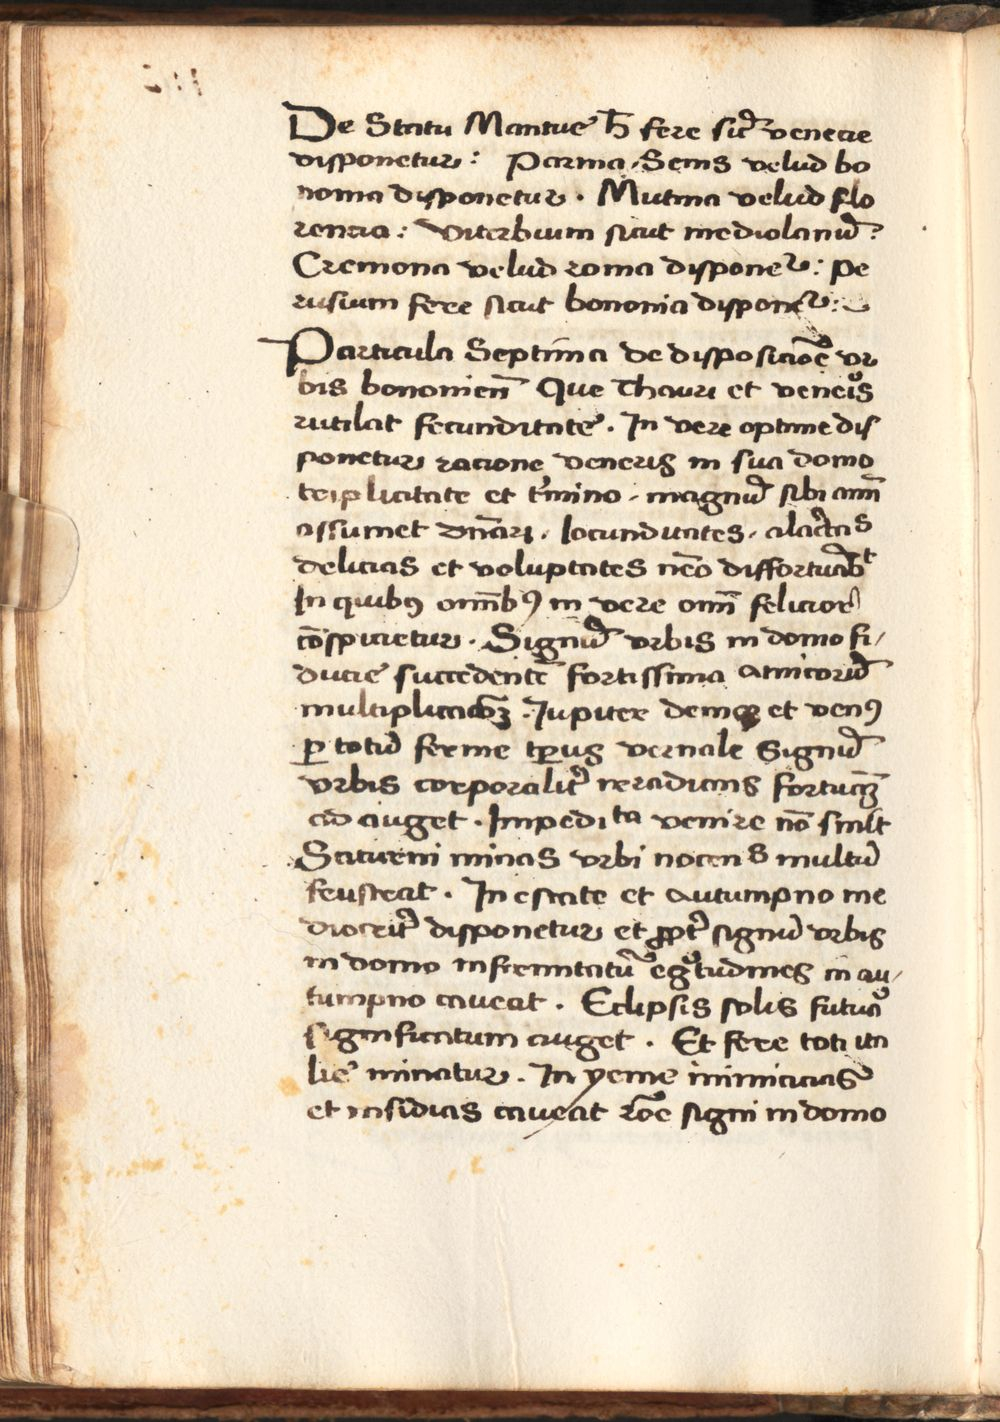 De Statu Mantue h̄ fere sic̄ venecie
disponetur : Parma, Sems velud bo
noma disponetur . Mutina velud flo
rencia : Viterbium sicut mediolanū :
Cremona velud roma disponet~ : Pe
rusium fere sicut bononia disponet~ :
Particula Septima de disposicōe vr
bis bononien̄ Que Thauri et veneis
rutilat fecunditate . In vere optime dis
ponetur racione veneris in sua domo
teiplicitate et t'mino . magnū sibi am̄
assumet dn̄ari . Iocunditates . alac'tas
delicias et voluptates nēo diffortuabt
In quibꝯ om̄ibꝯ in vere om̄ felicior
cōspicietur . Signū vrbis in domo fi/
ducie succedentē fortissima amicorū
multiplicacōꝫ . Iupiter et venꝯ
ꝑ totū ferme tp̄us vernale Signū
vrbis corporalit' irradians fortunā
ad auget . Impedita venire nō sinit
Saturni minas vrbi nocens multū
feustrat . In estate et autumpno me
diocrit' disponetur et ꝓpt' signū vrbis
in domo infirmitatū egtudines in au/
tumpno caveat . Eclipsis solis futura
significatum auget . Et fere toti ita
lie minatur . In yeme inimicicias
et insidias caveat rōe signi in domo